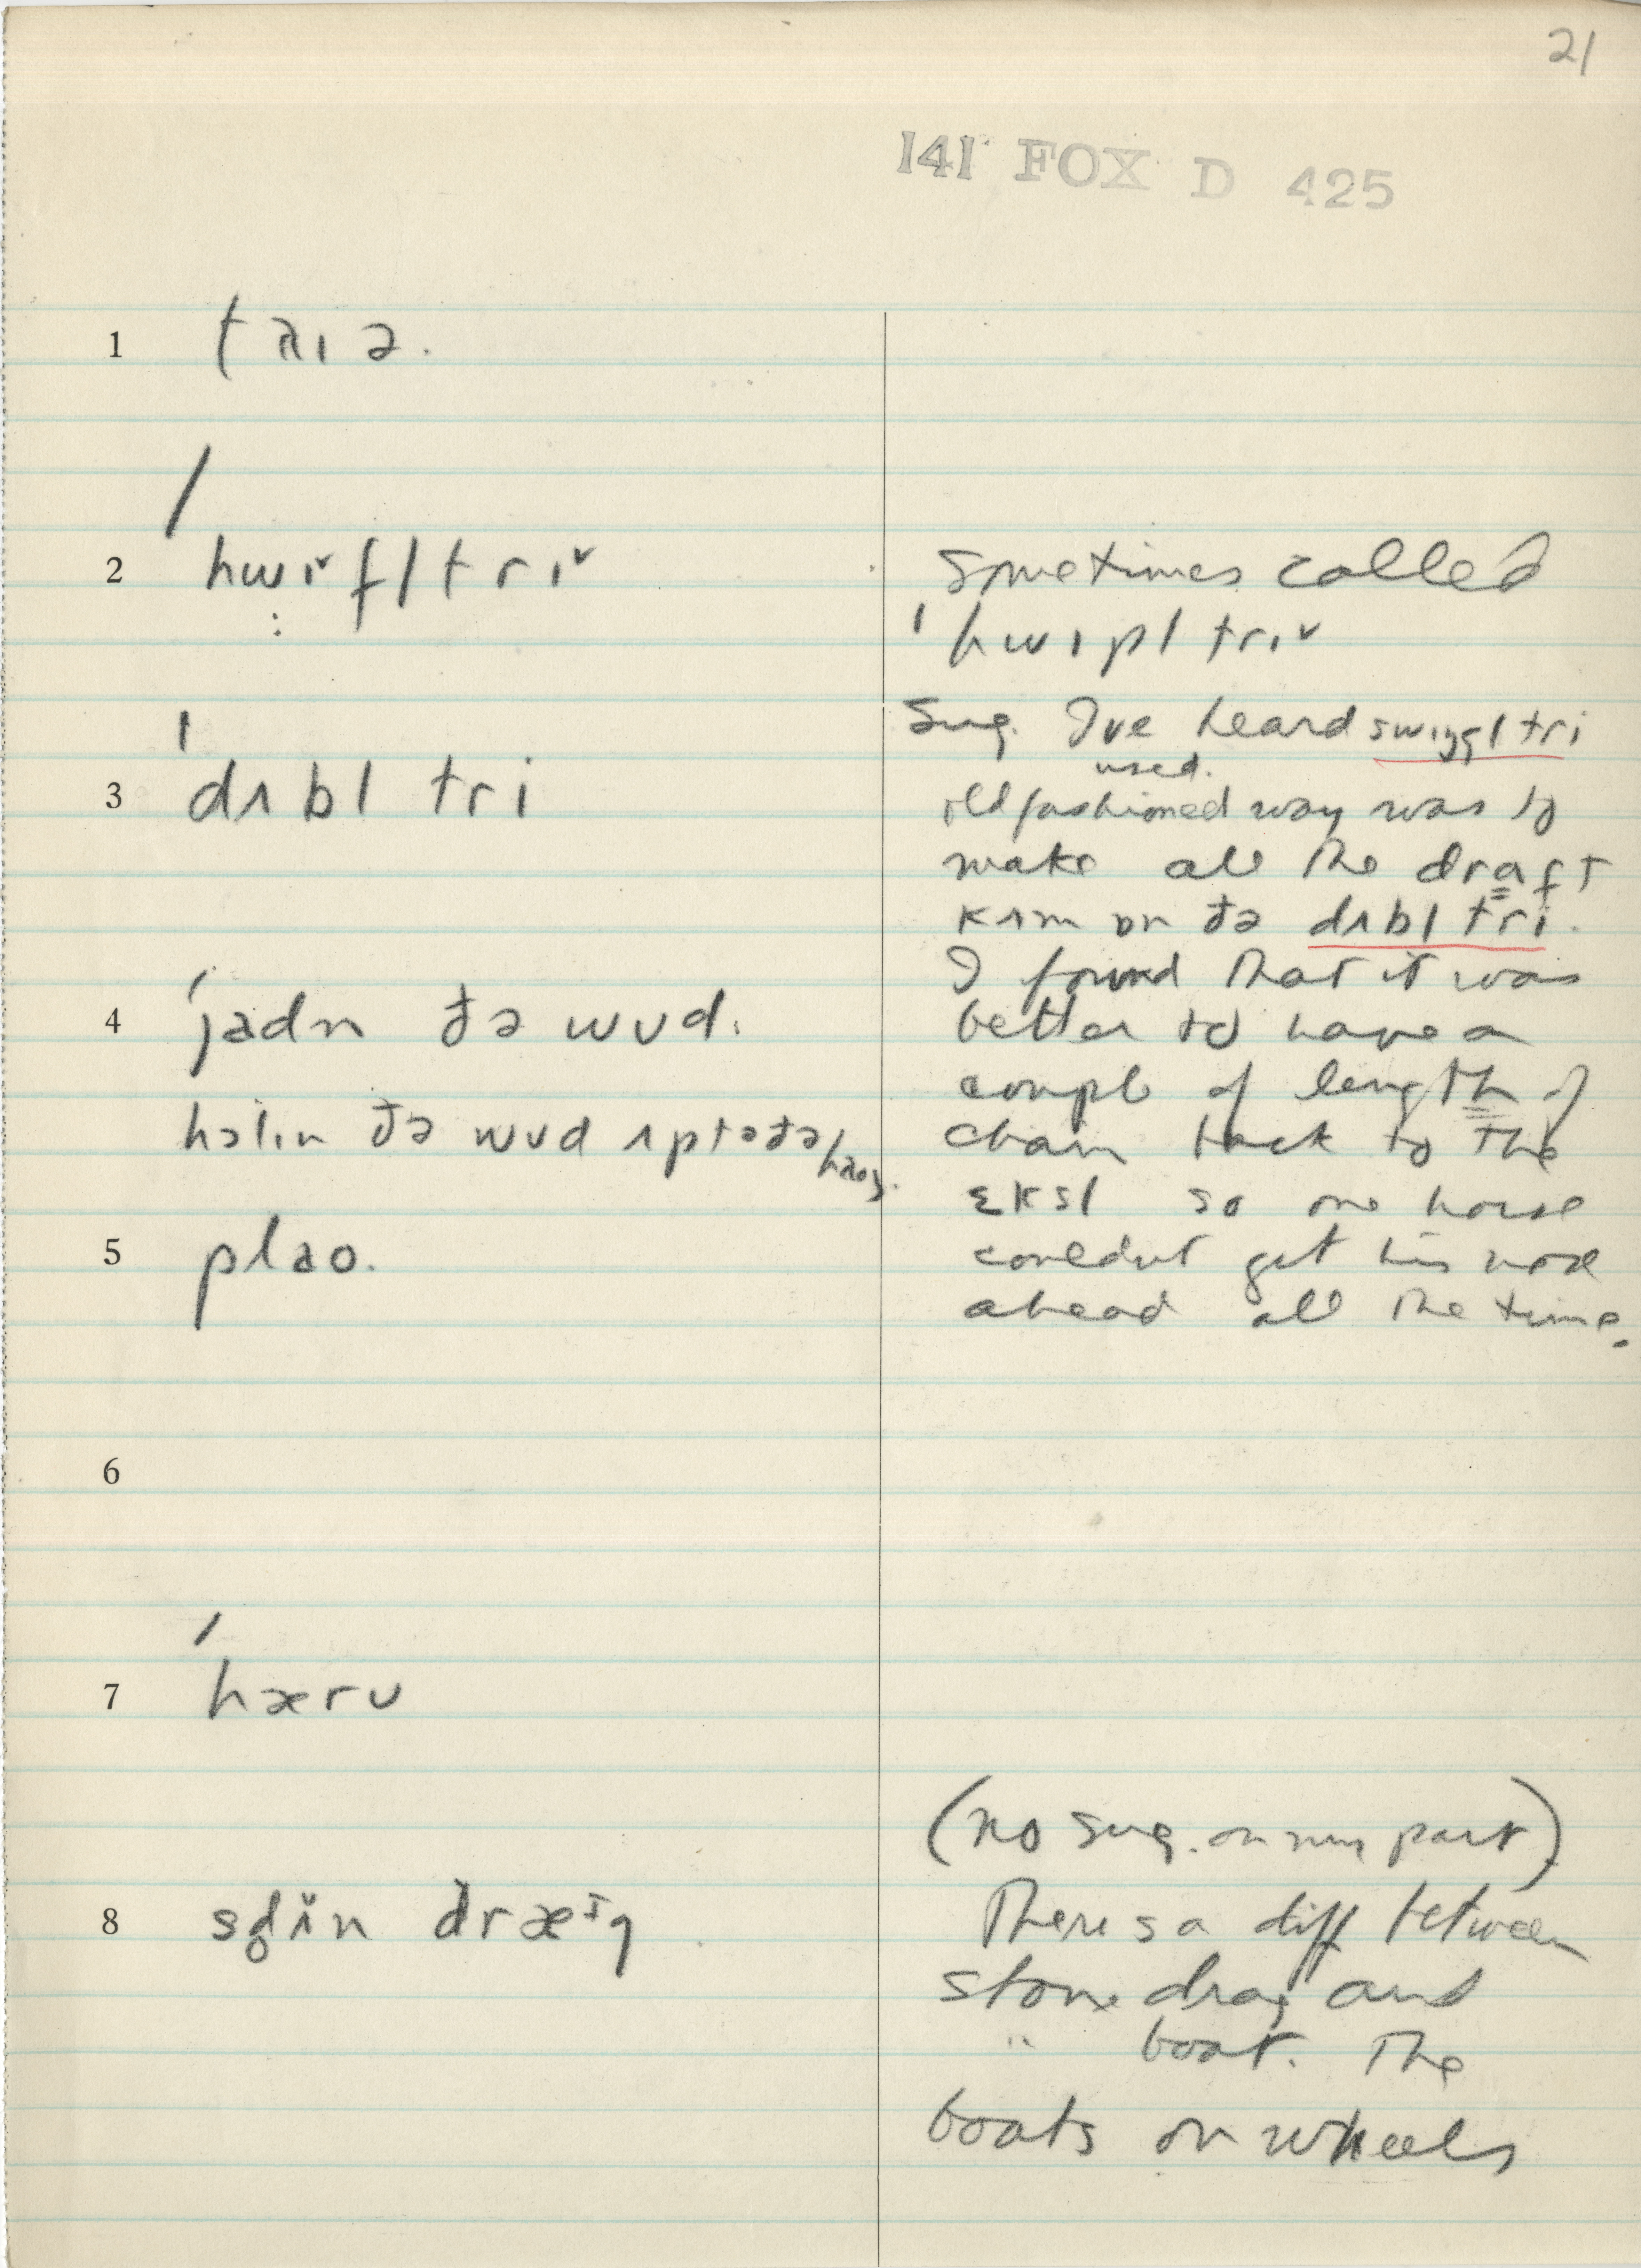 21
141 FOX D 425
1 taɪə.
2 ˈhwɪˇfltrɪˇ
Sometimes called
ˈhwɪpl trɪˇ
Sug. I've heard swɪŋgl tri
used.
3 ˈdʌbl tri
old fashioned way was to
make all the draft
kʌm ɒn ðə dʌbl tri.
I found that it was
4 ˈjadn ðə wʊd.
better to have a
couple of length of
hɔlɪn ðə wʊd ʌp tə ðə haʊs.
chain back to the
ɛksl so one horse
5 plao.
couldnt get his nose
ahead all the time.
6
7 ˈhærʊ
(no sug. on my part)
8 sd̥ʌ̆n dræɪg
There s a diff between
stone drag and
" boat. The
boats on wheels